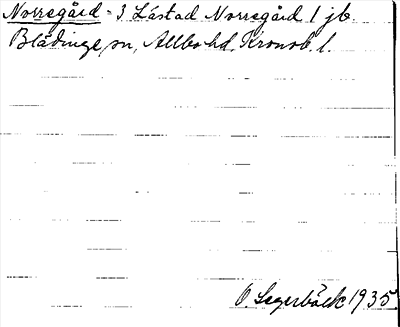 Norregård = 3 Låstad Norregård 1 jb.
Blädinge sn, Allbo hd. Kronob. l.
O. Segerbäck 1935